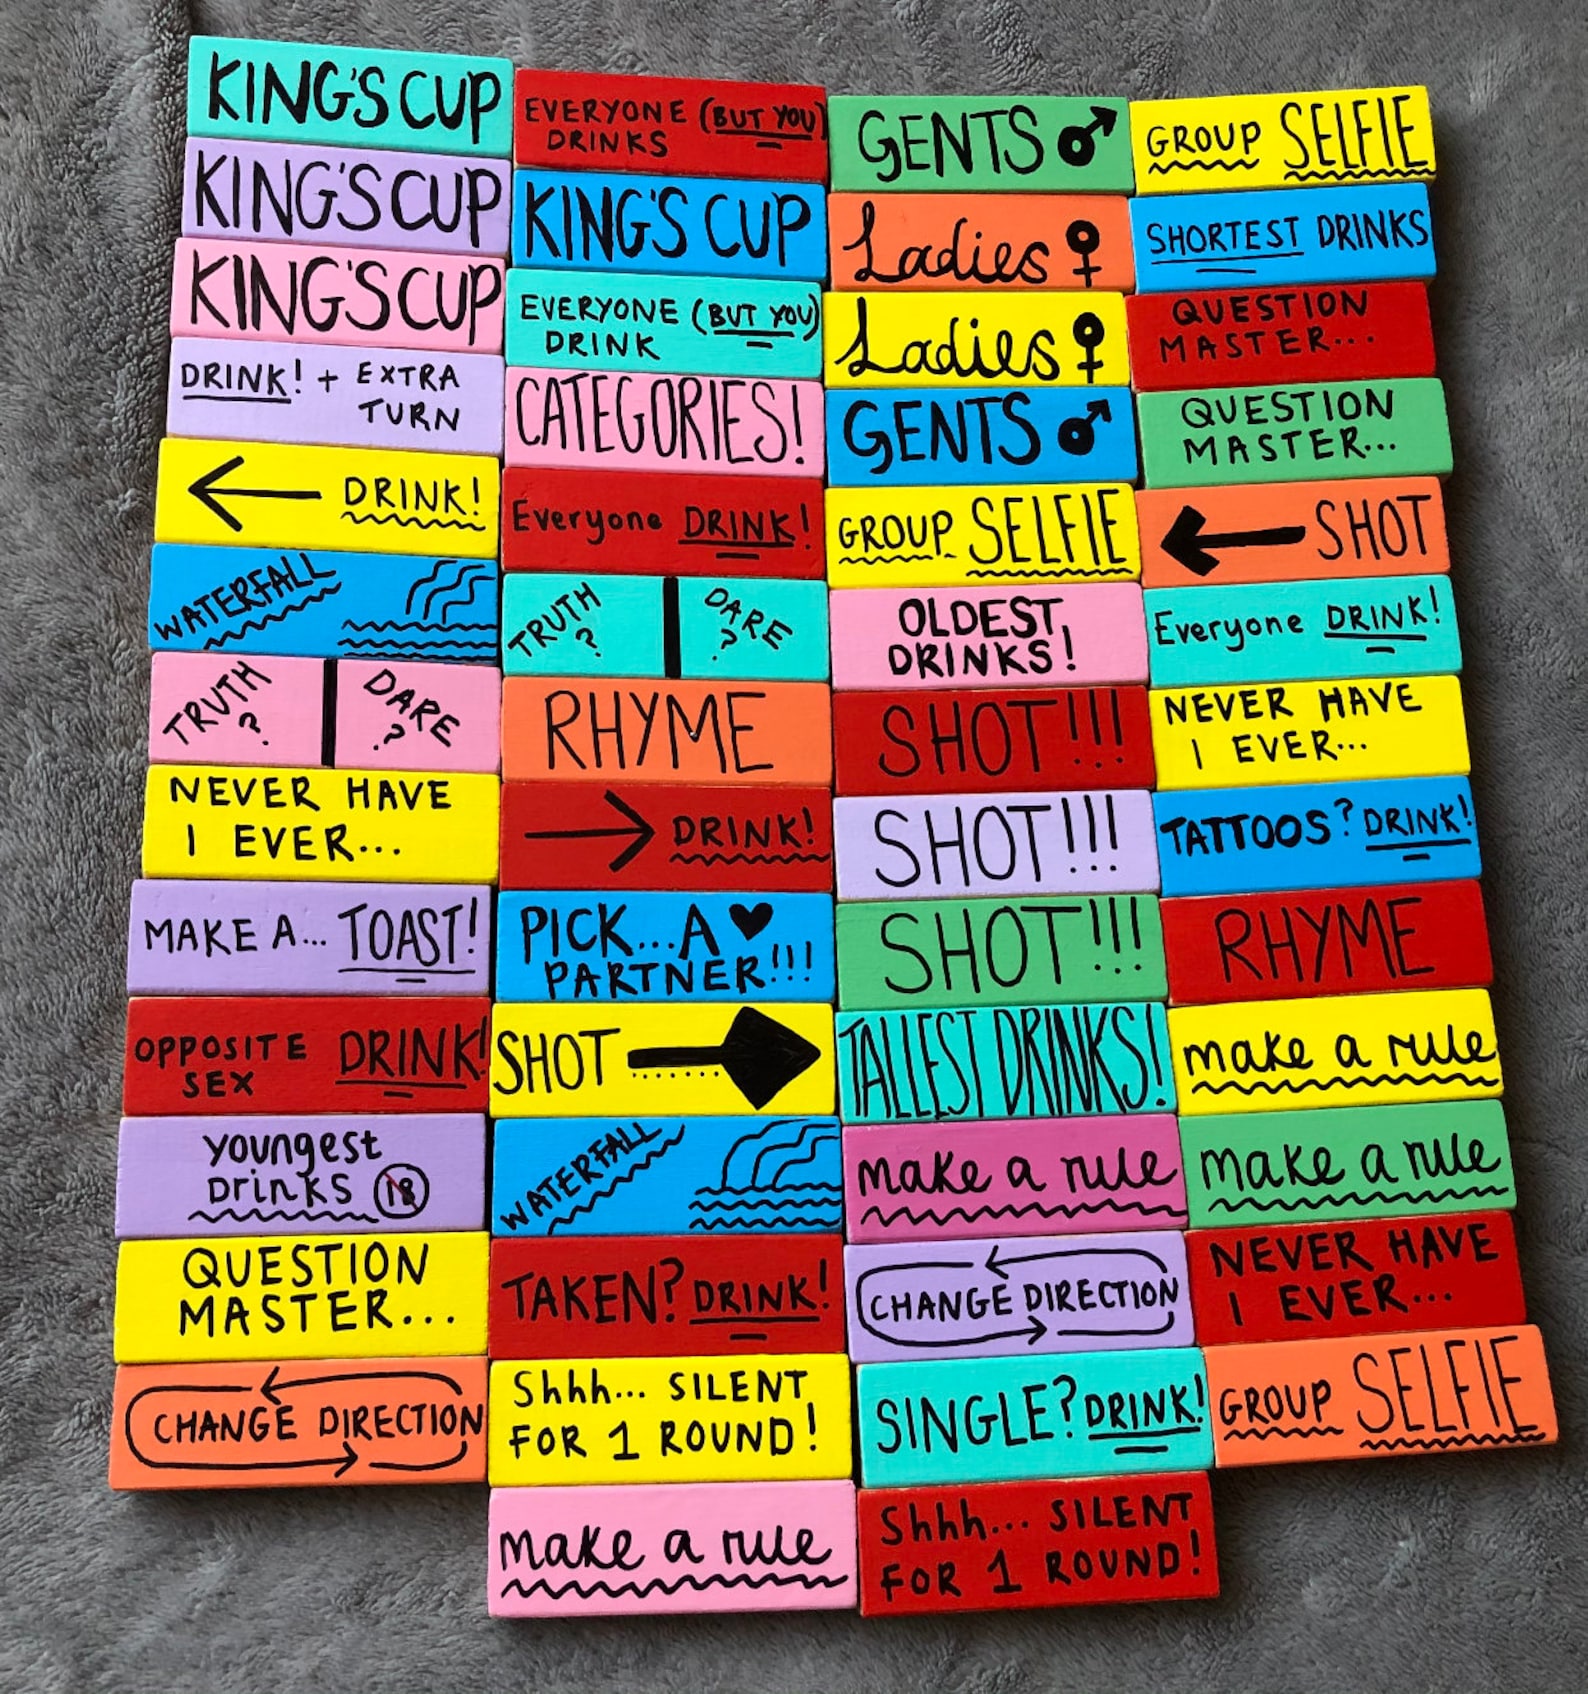 KING'S CUP
KING'S CUP
KING'S CUP
DRINK! + EXTRA
TURN
DRINK!
WATERFALL
TRUTH
?
DARE
?
NEVER HAVE
I EVER...
MAKE A... TOAST!
OPPOSITE
SEX
DRINK!
youngest
Drinks 18
QUESTION
MASTER...
CHANGE DIRECTION
EVERYONE (BUT YOU)
DRINKS
KING'S CUP
EVERYONE (BUT YOU)
DRINK
CATEGORIES!
Everyone DRINK!
TRUTH
?
DARE
?
RHYME
DRINK!
PICK...A
PARTNER!!!
SHOT
WATERFALL
TAKEN? DRINK!
Shhh... SILENT
FOR 1 ROUND!
make a rule
GENTS
Ladies
Ladies
GENTS
GROUP SELFIE
OLDEST
DRINKS!
SHOT!!!
SHOT!!!
SHOT!!!
TALLEST DRINKS!
make a rule
CHANGE DIRECTION
SINGLE? DRINK!
Shhh... SILENT
FOR 1 ROUND!
GROUP SELFIE
SHORTEST DRINKS
QUESTION
MASTER...
QUESTION
MASTER...
SHOT
Everyone DRINK!
NEVER HAVE
I EVER...
TATTOOS? DRINK!
RHYME
make a rule
make a rule
NEVER HAVE
I EVER...
GROUP SELFIE